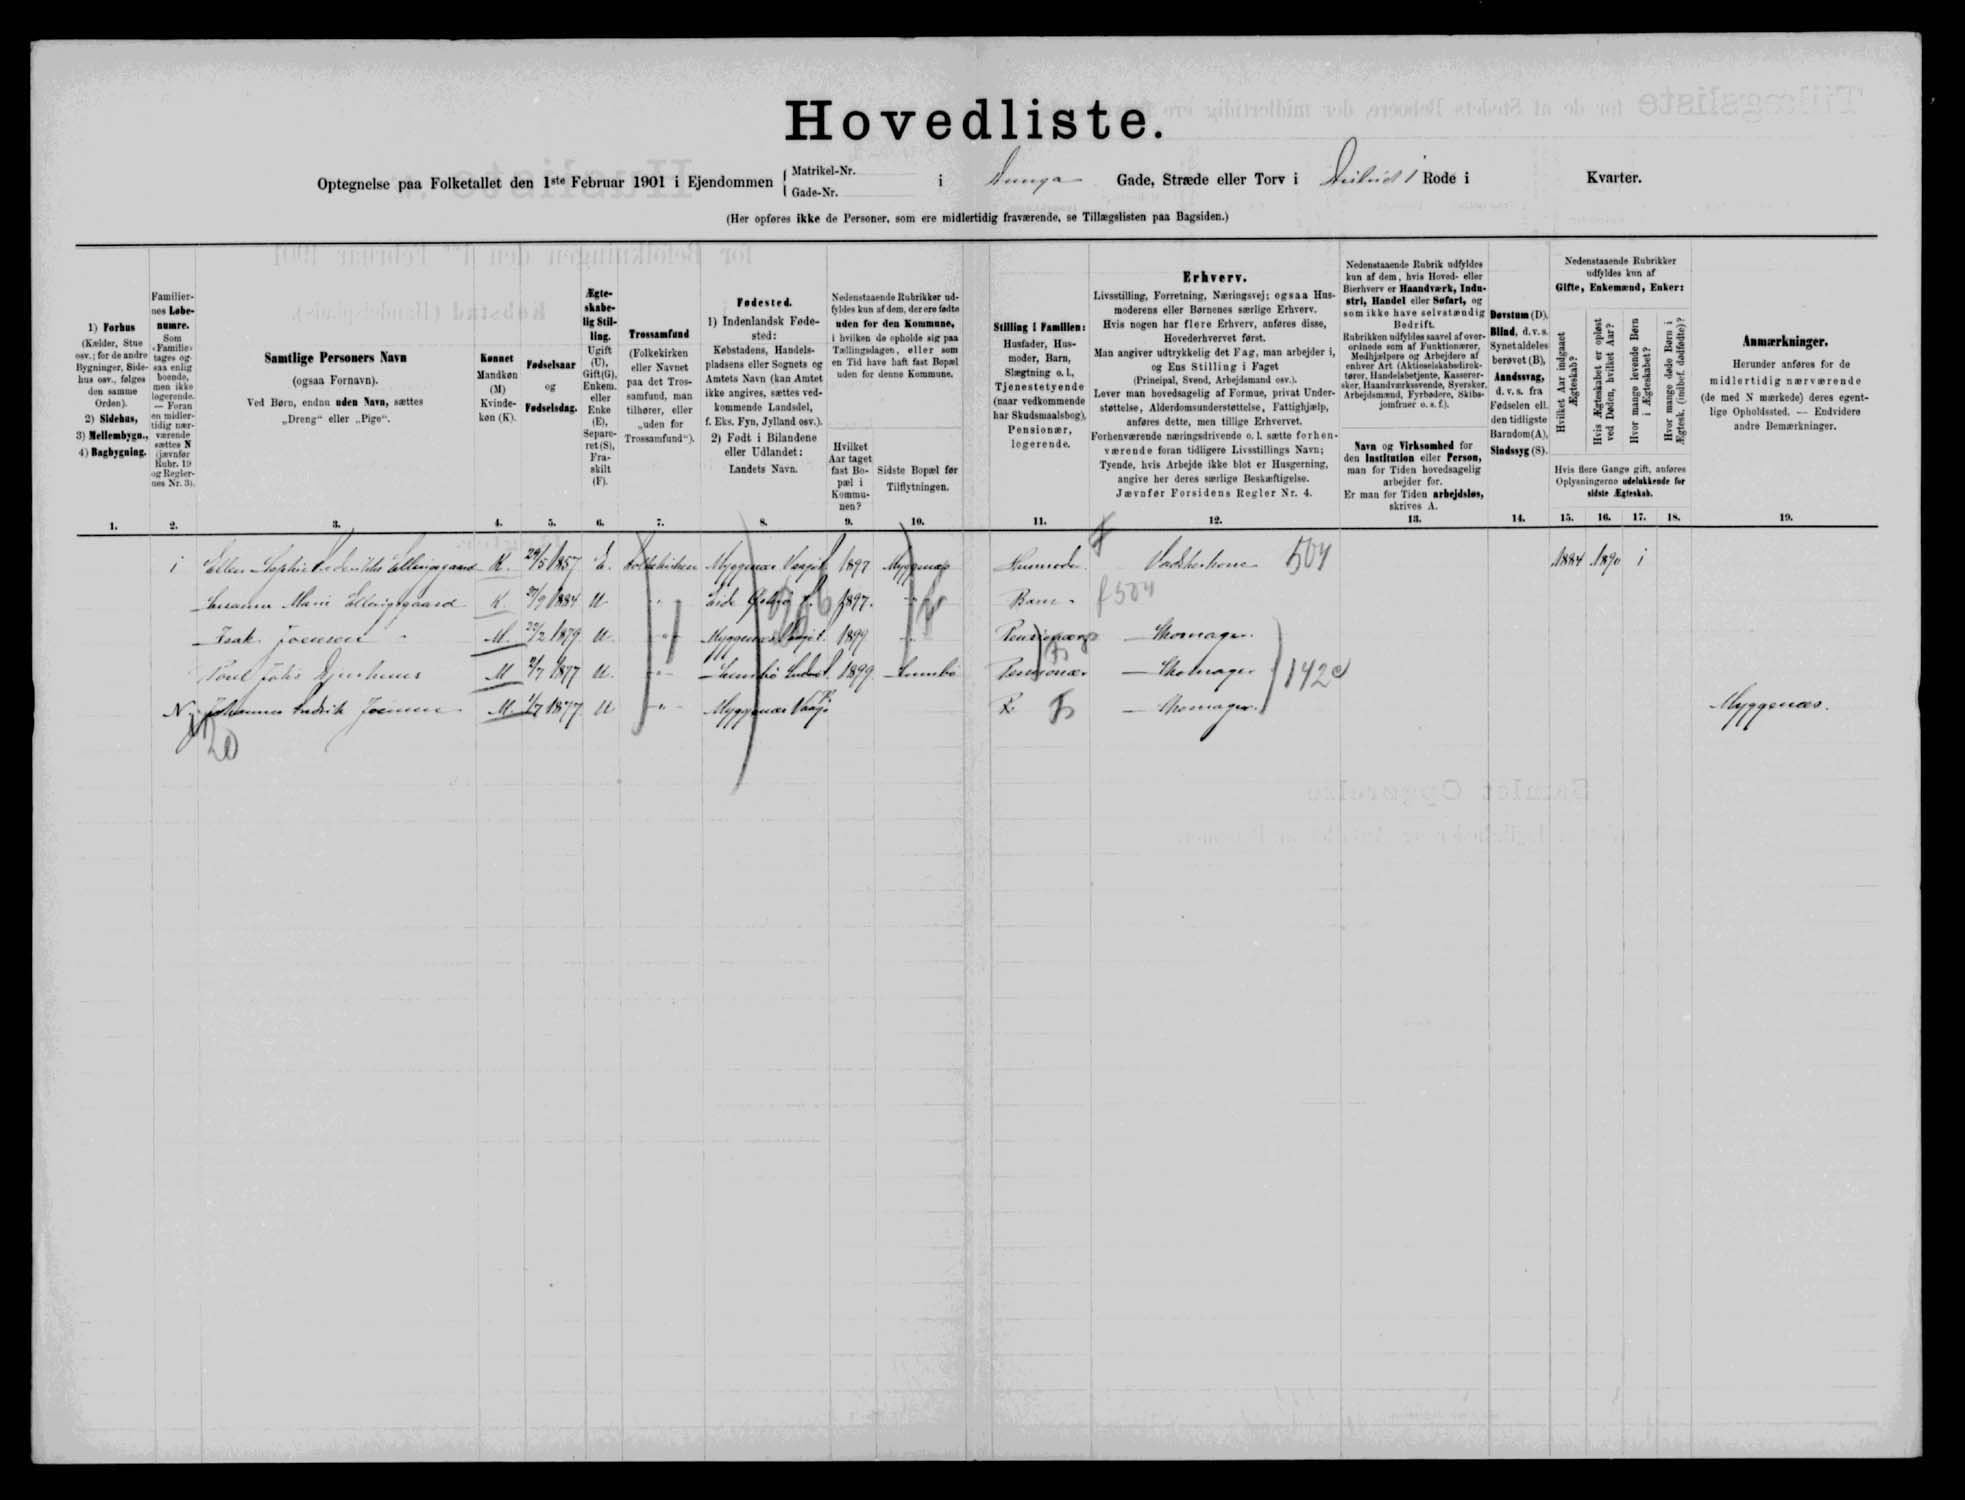 Hovedliste.
Optegnelse paa Folketallet den 1ste Februar 1901 i Ejendommen { Matrikel-Nr. Gade-Nr. i Gade, Stræde eller Torv i Rode i Kvarter.
(Her opføres ikke de Personer, som ere midlertidig fraværende, se Tillægslisten paa Bagsiden.)
1) Forhus (Kælder, Stue osv.; for de andre Bygninger, Sidehus osv., følges den samme Orden). 2) Sidehus, 3) Mellembygn., 4) Bagbygning.
Familiernes Løbenumre. Som »Familie« tages ogsaa enlig boende, men ikke logerende. — Foran en midlertidig nærværende sættes N (jævnfør Rubr. 19 og Reglernes Nr. 3).
Samtlige Personers Navn (ogsaa Fornavn). Ved Børn, endnu uden Navn, sættes „Dreng“ eller „Pige“.
Kønnet Mandkøn (M) Kvindekøn (K).
Fødselsaar og Fødselsdag.
Ægteskabelig Stilling. Ugift (U), Gift (G), Enkem. eller Enke (E), Separeret (S), Fraskilt (F).
Trossamfund (Folkekirken eller Navnet paa det Trossamfund, man tilhører, eller „uden for Trossamfund“).
Fødested. 1) Indenlandsk Fødested: Købstadens, Handelspladsens eller Sognets og Amtets Navn (kan Amtet ikke angives, sættes vedkommende Landsdel, f. Eks. Fyn, Jylland osv.). 2) Født i Bilandene eller Udlandet: Landets Navn.
Nedenstaaende Rubrikker udfyldes kun af dem, der ere fødte uden for den Kommune, i hvilken de opholde sig paa Tællingsdagen, eller som en Tid have haft fast Bopæl uden for denne Kommune.
Hvilket Aar taget fast Bopæl i Kommunen?
Sidste Bopæl før Tilflytningen.
Stilling i Familien: Husfader, Husmoder, Barn, Slægtning o. l., Tjenestetyende (naar vedkommende har Skudsmaalsbog), Pensionær, logerende.
Erhverv.
Livsstilling, Forretning, Næringsvej; ogsaa Husmoderens eller Børnenes særlige Erhverv.
Hvis nogen har flere Erhverv, anføres disse, Hovederhvervet først.
Man angiver udtrykkelig det Fag, man arbejder i, og Ens Stilling i Faget
(Principal, Svend, Arbejdsmand osv.).
Lever man hovedsagelig af Formue, privat Understøttelse, Alderdomsunderstøttelse, Fattighjælp, anføres dette, men tillige Erhvervet.
Forhenværende næringsdrivende o. l. sætte forhenværende foran tidligere Livsstillings Navn;
Tyende, hvis Arbejde ikke blot er Husgerning, angive her deres særlige Beskæftigelse.
Jævnfør Forsidens Regler Nr. 4.
Nedenstaaende Rubrik udfyldes kun af dem, hvis Hoved- eller Bierhverv er Haandværk, Industri, Handel eller Søfart, og som ikke have selvstændig Bedrift.
Rubrikken udfyldes saavel af overordnede som af Funktionærer, Medhjælpere og Arbejdere af enhver Art (Aktieselskabsdirektører, Handelsbetjente, Kassererersker, Haandværkssvende, Syersker, Arbejdsmænd, Fyrbødere, Skibsjomfruer o. s. f.).
Navn og Virksomhed for den Institution eller Person, man for Tiden hovedsagelig arbejder for.
Er man for Tiden arbejdsløs, skrives A.
Døvstum (D), Blind, d. v. s. Synet aldeles berøvet (B), Aandssvag, d. v. s. fra Fødselen ell. den tidligste Barndom (A), Sindssyg (S).
Nedenstaaende Rubrikker udfyldes kun af Gifte, Enkemænd, Enker:
Hvilket Aar indgaaet Ægteskab?
Hvis Ægteskabet er opløst ved Døden, hvilket Aar?
Hvor mange levende Børn i Ægteskabet?
Hvor mange døde Børn i Ægtesk. (indbef. dødfødte)?
Hvis flere Gange gift, anføres Oplysningerne udelukkende for sidste Ægteskab.
Anmærkninger.
Herunder anføres for de midlertidig nærværende (de med N mærkede) deres egentlige Opholdssted. — Endvidere andre Bemærkninger.
1. 2. 3. 4. 5. 6. 7. 8. 9. 10. 11. 12. 13. 14. 15. 16. 17. 18. 19.
i Ellen Sophie Ellingsgaard K. 29/5 1857 E. Folkekirken Myggenæs 1897 Myggenæs Husmoder 504 1884 1890 i
Susanna Marie Ellingsgaard K. 1884 U " 1897. " Barn f 504
Isak Joensen M. 22/2 1879 U. " Myggenæs 1899 " Pensionær — Skomager.
Poul M 2/7 1877 U. " Sumbø 1899 Sumbø Pensionær — Skomager 1420
N Johannes Joensen M. 1/7 1877 U " Myggenæs Vaagø — Skomager. Myggenæs.
20